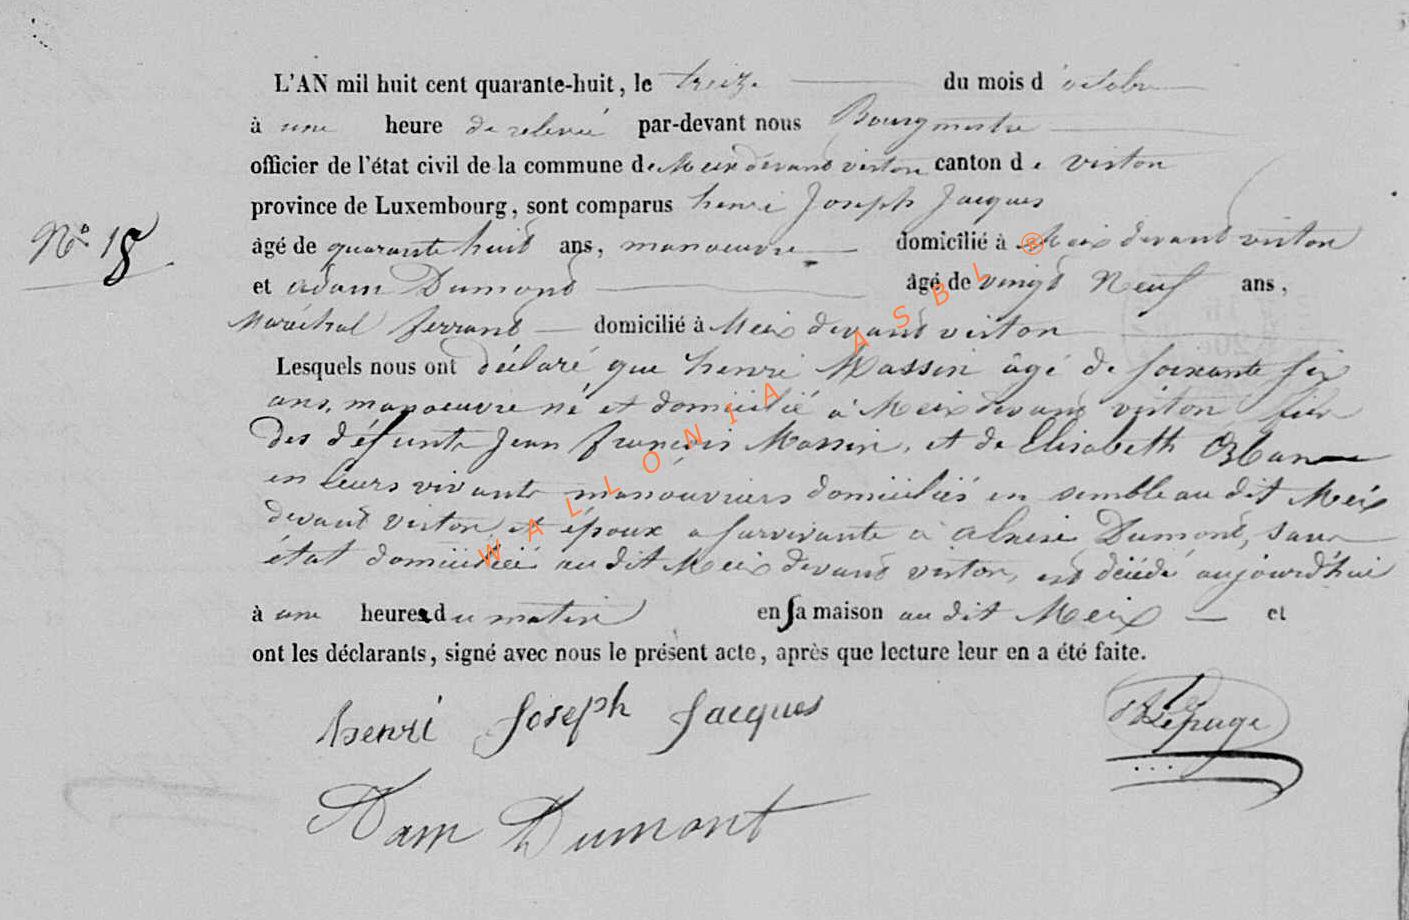 L'AN mil huit cent quarante-huit, le treize du mois d'octobre
à une heure de relevée par-devant nous Bourgmestre
officier de l'état civil de la commune de Meix devant virton canton de virton
province de Luxembourg, sont comparus henri Joseph Jacques
N° 18
âgé de quarante huit ans, manoeuvre domicilié à Meix devant virton
et adam Dumond âgé de vingt Neuf ans,
Maréchal ferrant domicilié à Meix devant virton
Lesquels nous ont déclaré que henri Massin âgé de soixante six
ans, manoeuvre né et domicilié à Meix devant virton fils
des défunts Jean françois Massin, et de Elisabeth
en leurs vivants manouvriers domiciliés en semble au dit Meix
devant virton et époux a survivante à Dumont, sans
état domiciliée au dit Meix devant virton, est décédé aujourd'hui
à une heure du matin en sa maison au dit Meix et
ont les déclarants, signé avec nous le présent acte, après que lecture leur en a été faite.
henri Joseph Jacques
Lepage
Adam Dumont
WALLONIA ASBL ®